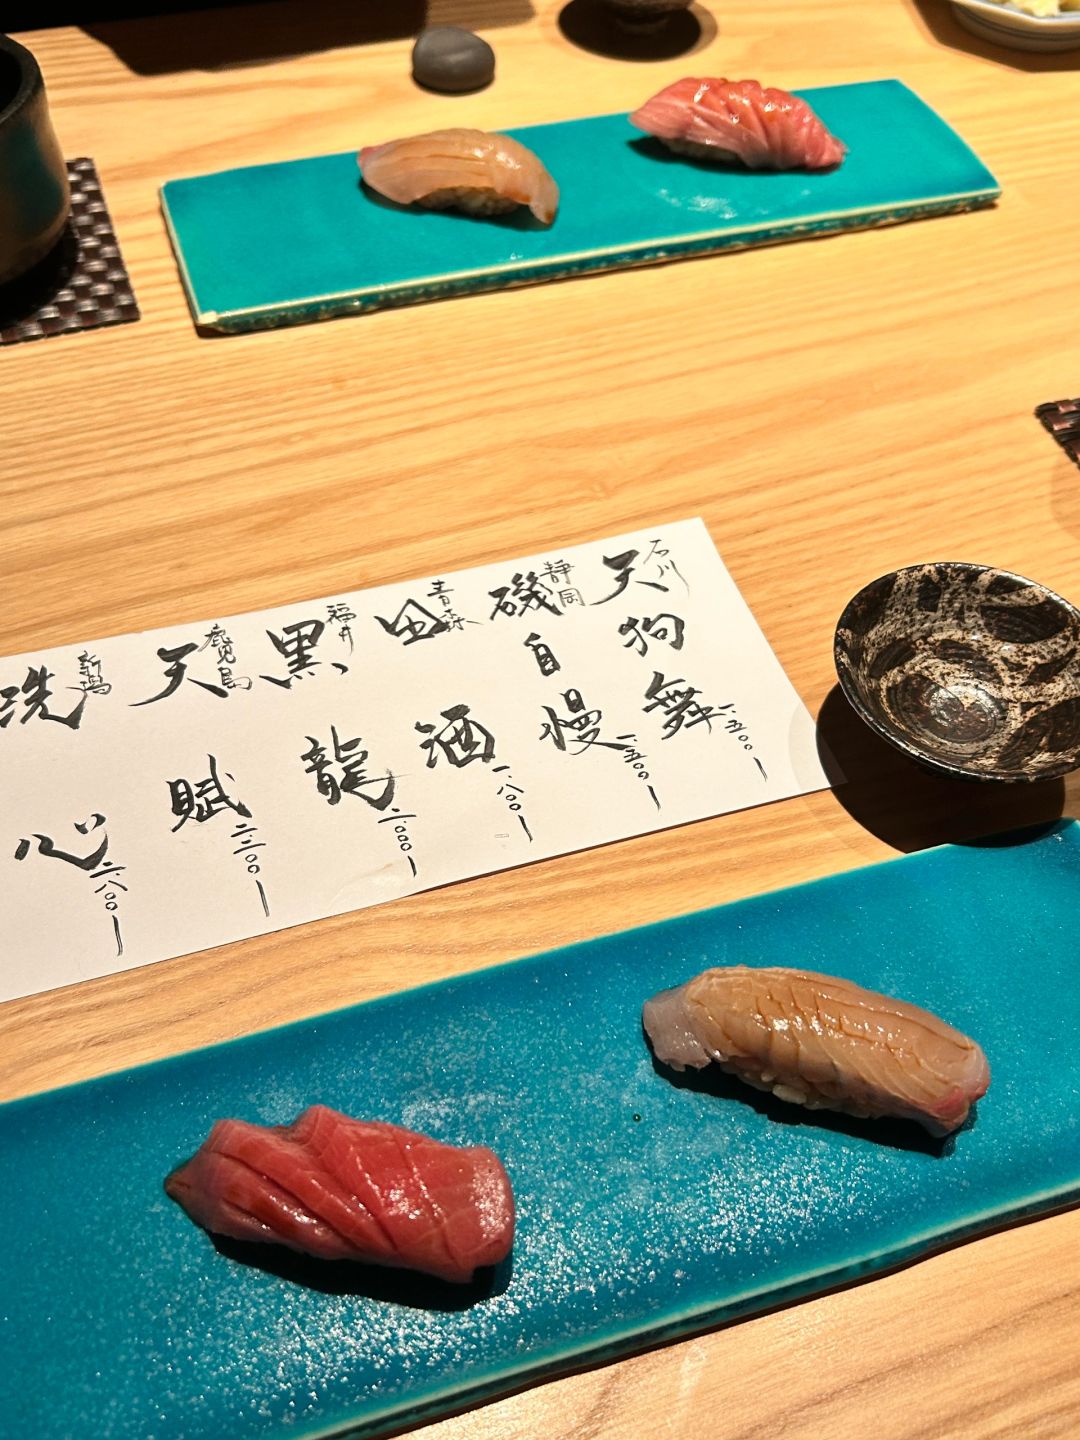 石川
天狗舞 一、五〇〇ー
静岡
磯自慢 一、五〇〇ー
青森
田酒 一、八〇〇ー
福井
黒龍 二、〇〇〇ー
鹿児島
天賦 二、二〇〇ー
新潟
洗心 二、八〇〇ー